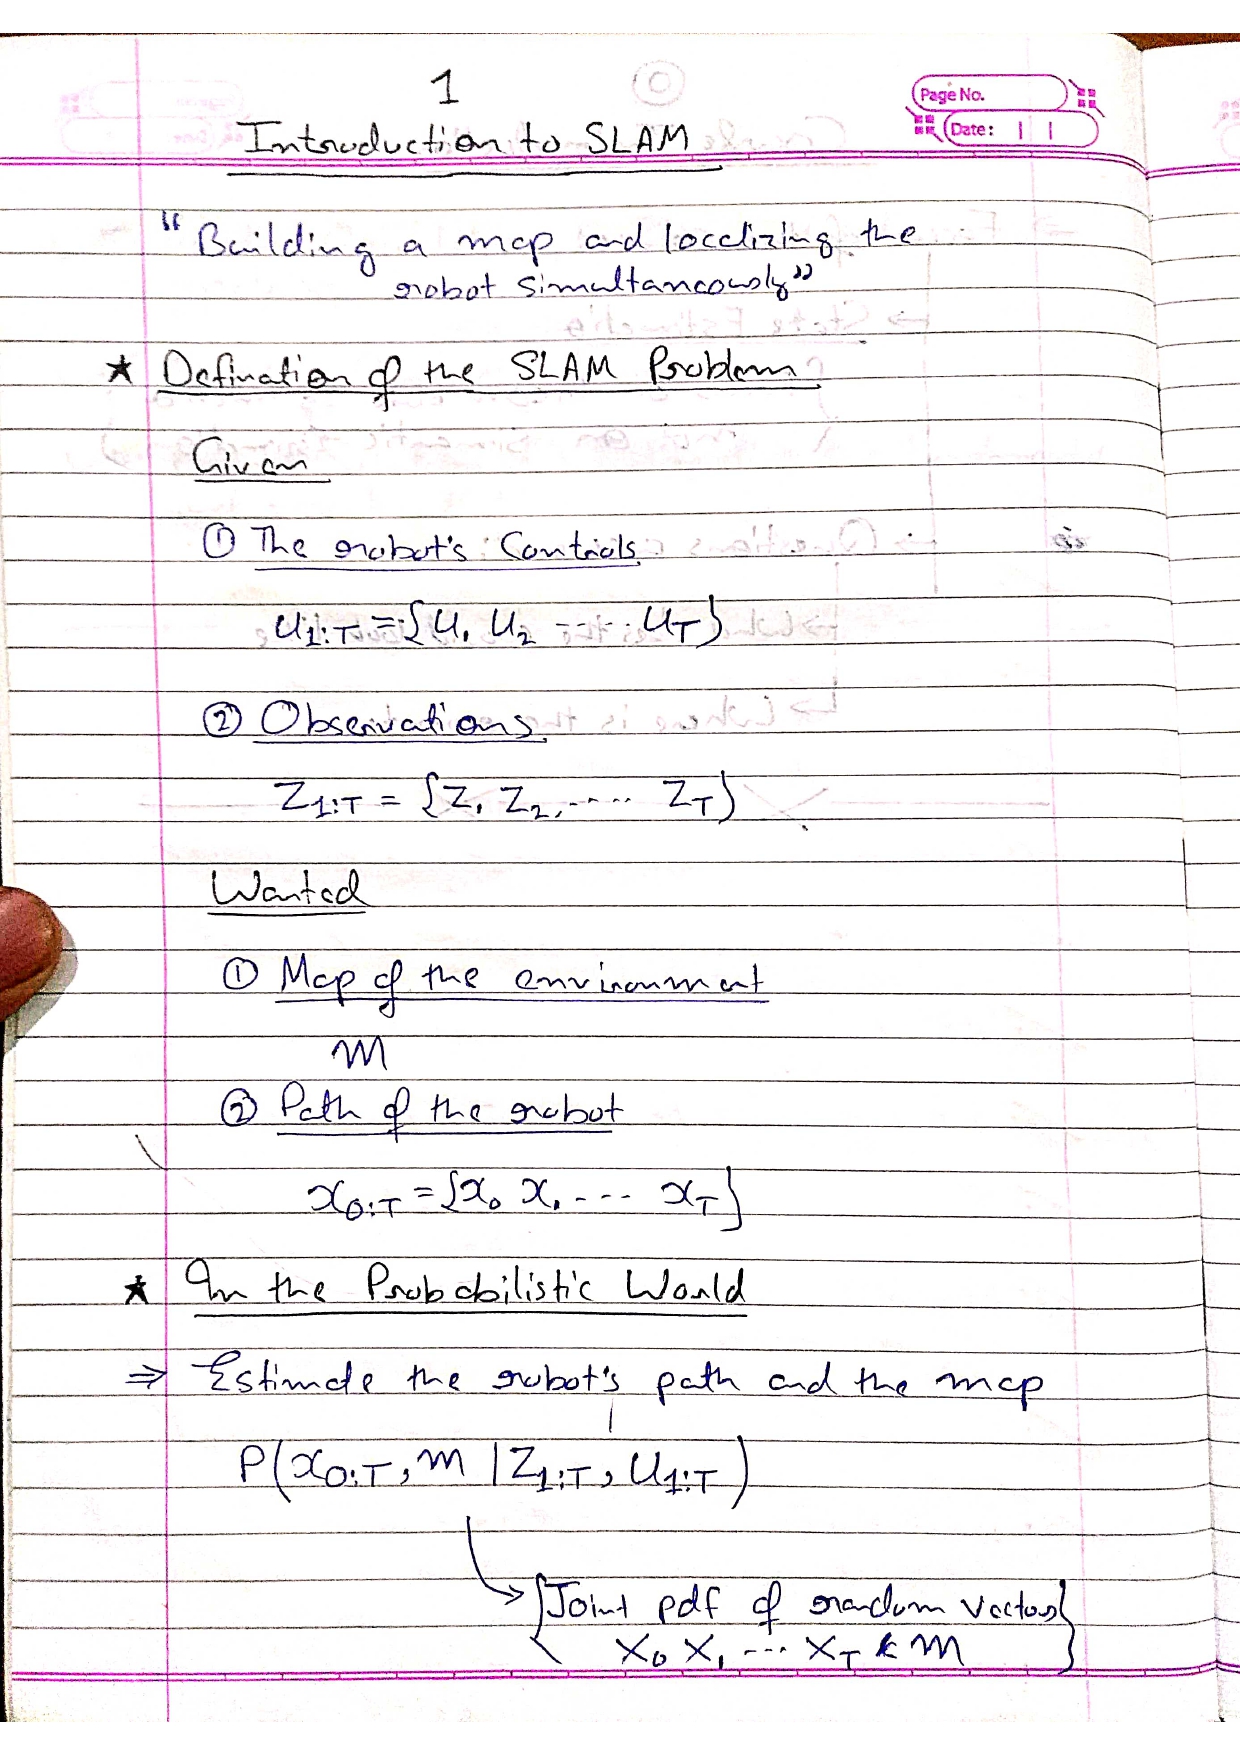 1
Page No.
Date:
Introduction to SLAM
"Building a map and localizing the
robot simultaneously"
★ Defination of the SLAM Problem
Given
① The robot's Controls
u₁:T = {u₁ u₂ ---- u_T}
② Observations
Z₁:T = {Z₁ Z₂, ---- Z_T}
Wanted
① Map of the environment
m
② Path of the robot
x₀:T = {x₀ x₁ --- x_T}
★ In the Probabilistic World
⇒ Estimate the robot's path and the map
P(x₀:T, m | Z₁:T, U₁:T)
{Joint pdf of random vectors
X₀ X₁ --- X_T & m}